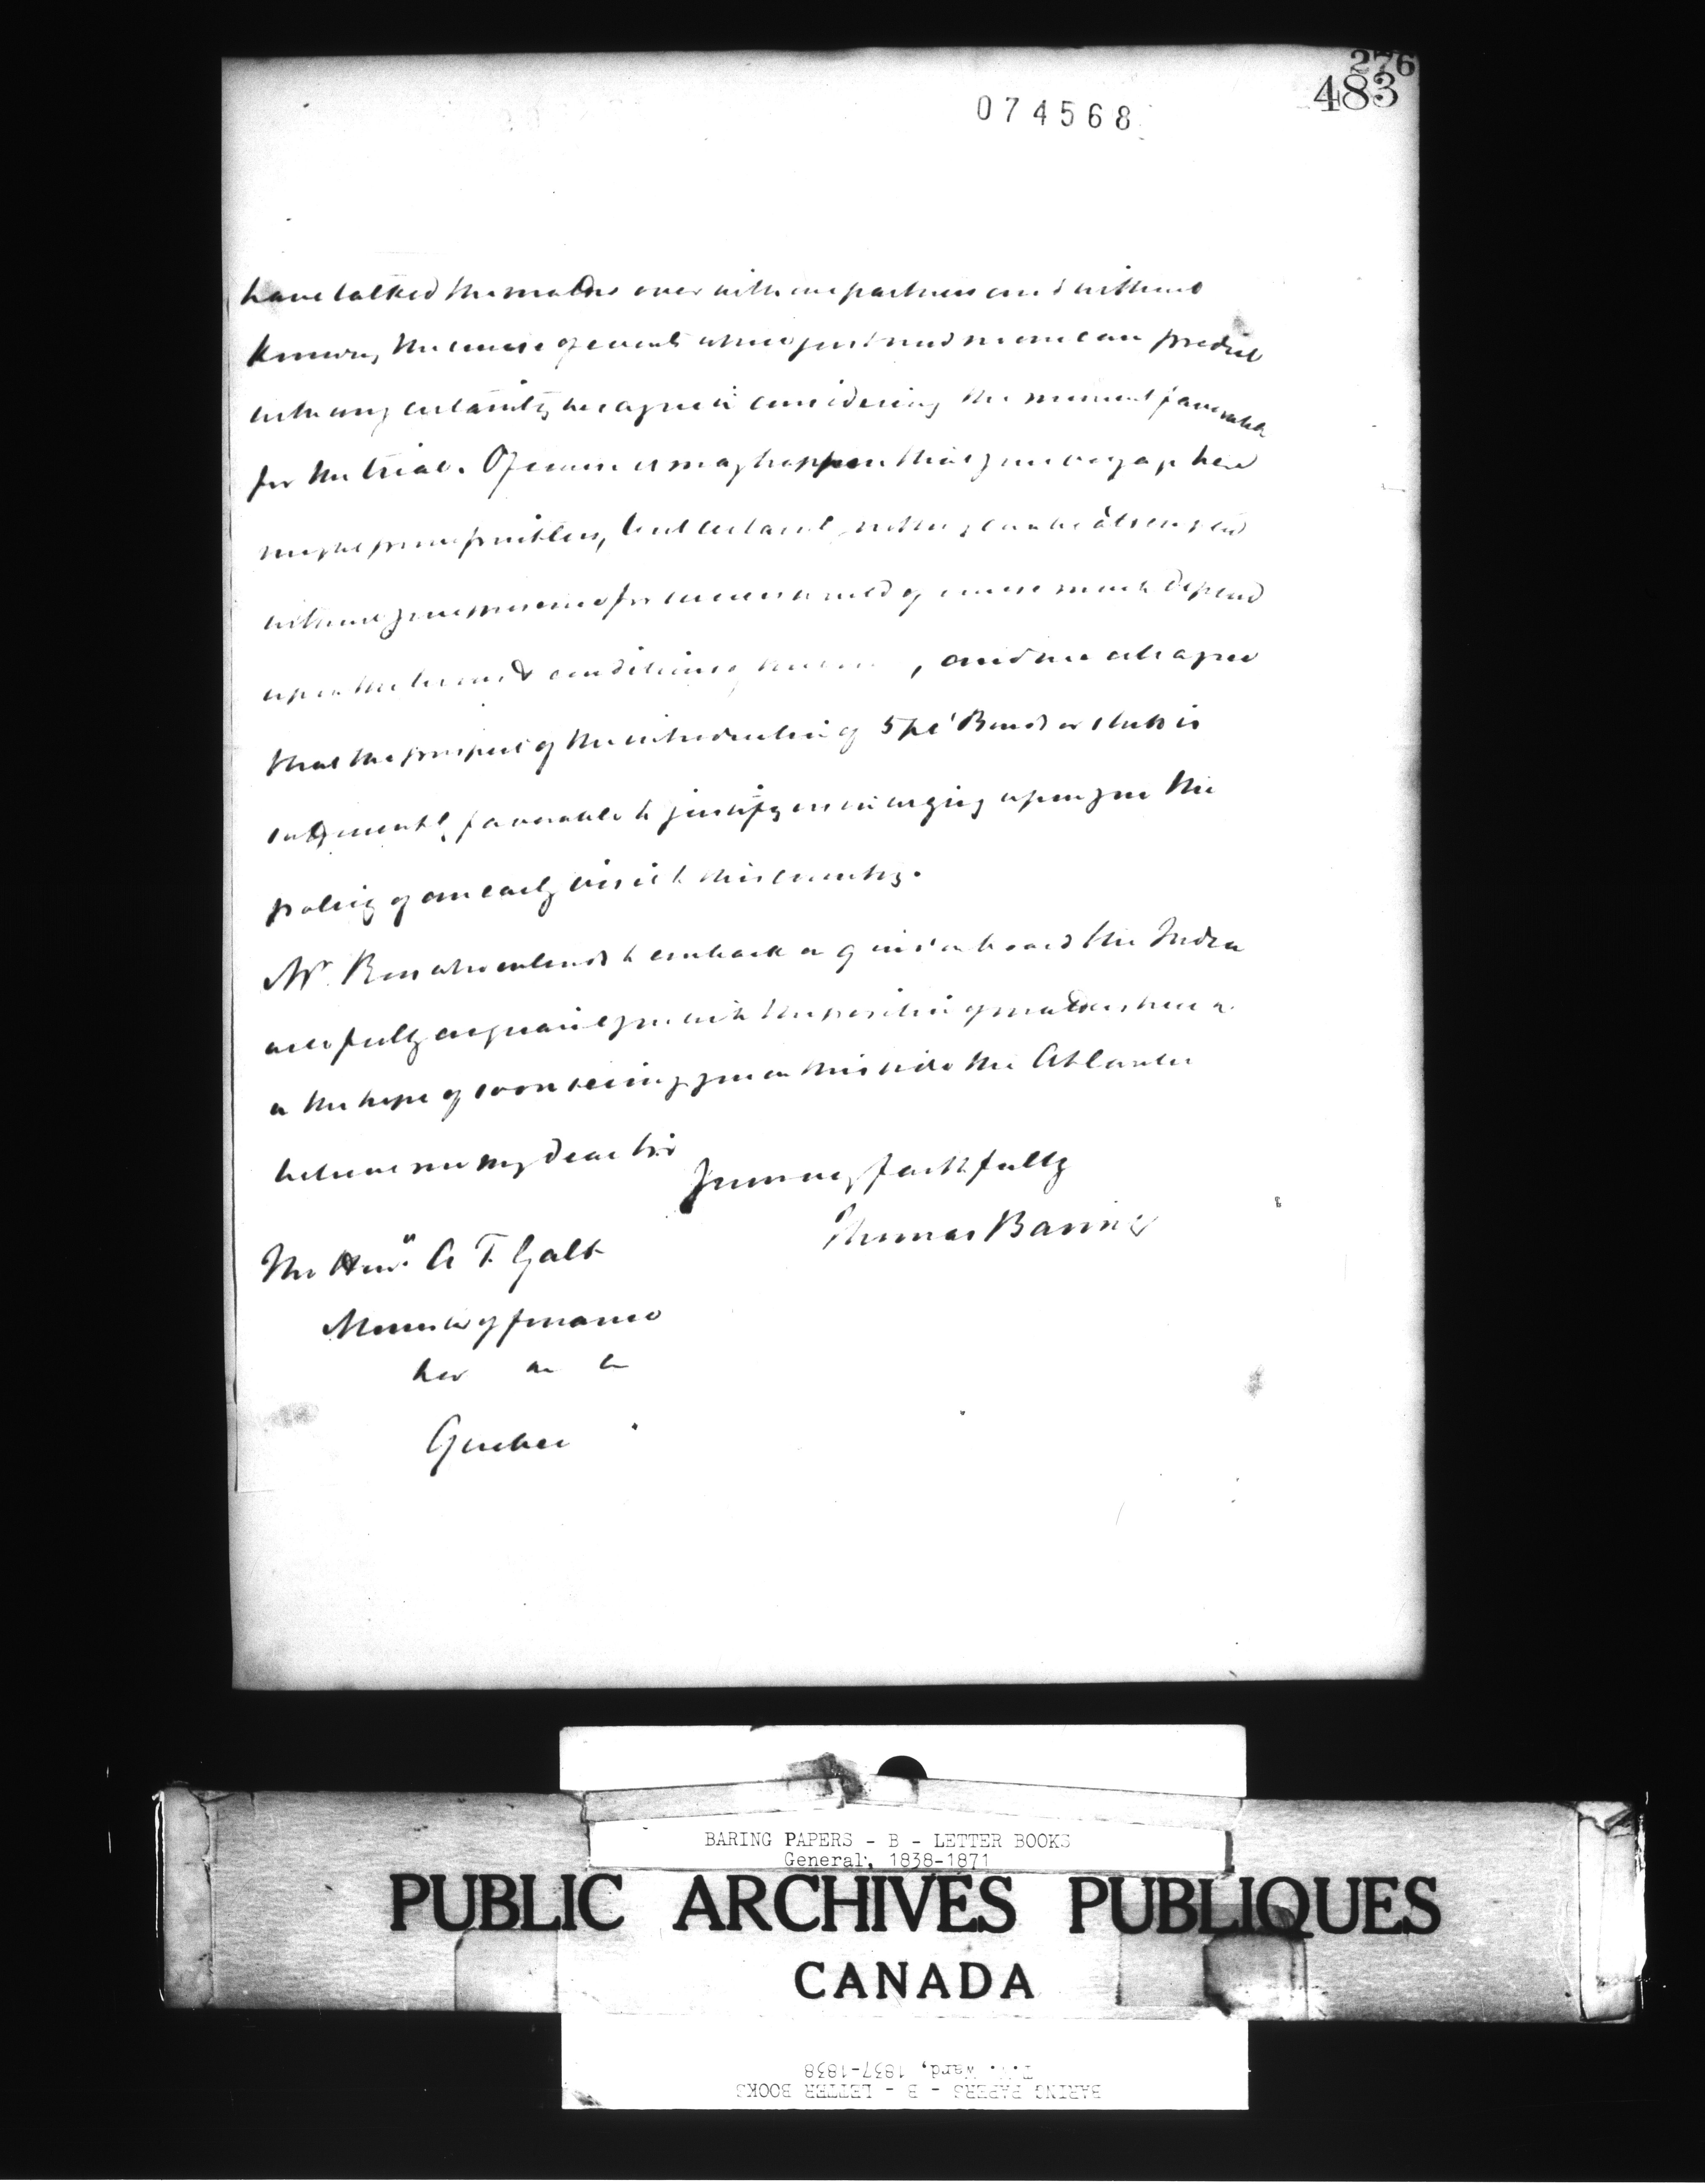 276
483
074568
have talked the matter over with our partners and without
knowing the course of events which just now no one can predict
with any certainty we agree in considering the moment favorable
for the trial. Of course it may happen that your voyage here
might prove fruitless, but certainly nothing can be attempted
without your presence for success would of course much depend
upon the terms & conditions , and we all agree
that the prospect of the introduction of 5 pCt Bonds or stock is
sufficiently favorable to justify us in urging upon you the
policy of an early visit to this country.
Mr. Ross who intends to embark again on board the Indian
will fully acquaint you with the position of matters here &
in the hope of soon seeing you on this side the Atlantic
believe me my dear Sir
Yours very faithfully
Thomas Baring
The Honble A T. Galt
Minister of finance
Quebec
BARING PAPERS - B - LETTER BOOKS
General, 1838-1871
PUBLIC ARCHIVES PUBLIQUES
CANADA
BARING PAPERS - B - LETTER BOOKS
T.W. Ward, 1837-1838